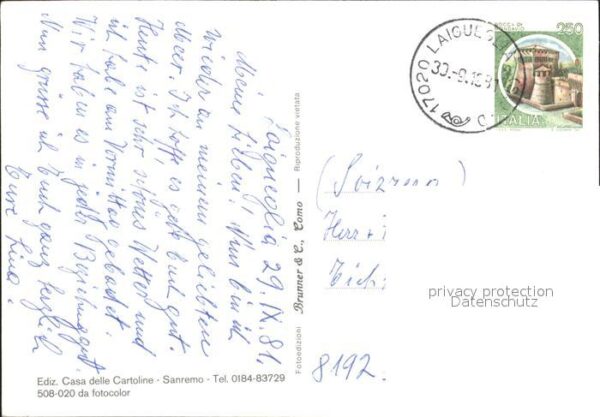 Laigueglia 29. IX. 81.
Meine Lieben! Nun bin ich
wieder an meinem geliebten
Meer. Ich hoffe, es gehe Euch gut.
Heute ist sehr schönes Wetter und
ich habe am Vormittag gebadet.
Wir haben es in jeder Beziehung gut.
Nun grüsse ich Euch ganz herzlich
Eure Lina.
Ediz. Casa delle Cartoline - Sanremo - Tel. 0184-83729
508-020 da fotocolor
Fotoedizioni Brunner & C., Como — Riproduzione vietata
17020 LAIGUEGLIA
250
ITALIA
(Svizzera)
8192
privacy protection
Datenschutz